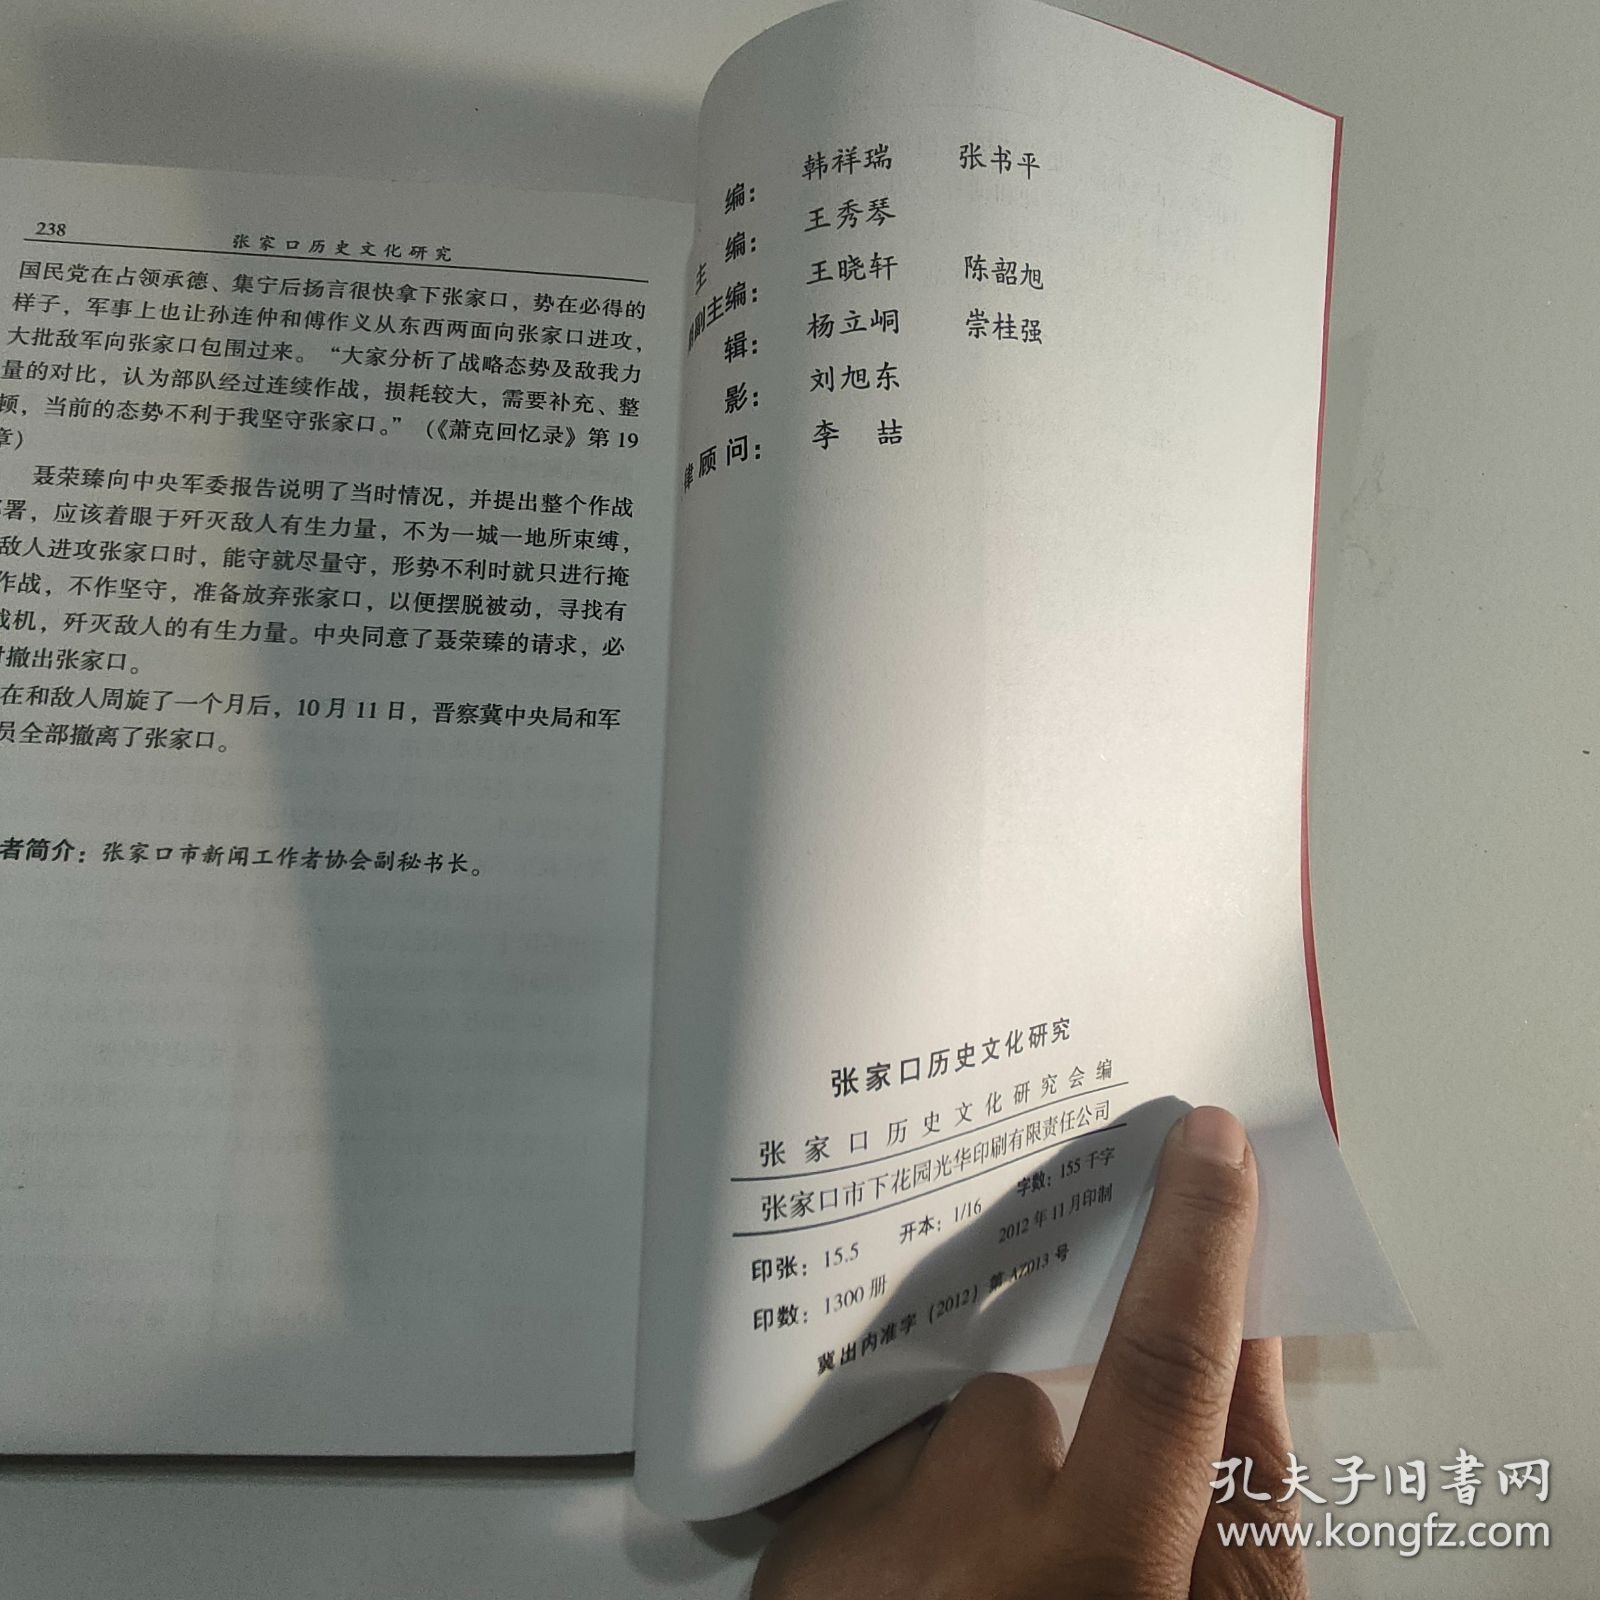 238
张家口历史文化研究
国民党在占领承德、集宁后扬言很快拿下张家口，势在必得的
样子，军事上也让孙连仲和傅作义从东西两面向张家口进攻，
大批敌军向张家口包围过来。“大家分析了战略态势及敌我力
量的对比，认为部队经过连续作战，损耗较大，需要补充、整
顿，当前的态势不利于我坚守张家口。”（《萧克回忆录》第19
章）
聂荣臻向中央军委报告说明了当时情况，并提出整个作战
署，应该着眼于歼灭敌人有生力量，不为一城一地所束缚，
敌人进攻张家口时，能守就尽量守，形势不利时就只进行掩
作战，不作坚守，准备放弃张家口，以便摆脱被动，寻找有
战机，歼灭敌人的有生力量。中央同意了聂荣臻的请求，必
撤出张家口。
在和敌人周旋了一个月后，10月11日，晋察冀中央局和军
员全部撤离了张家口。
者简介：张家口市新闻工作者协会副秘书长。
编：韩祥瑞 张书平
主编：王秀琴
副主编：王晓轩 陈韶旭
辑：杨立峒 崇桂强
影：刘旭东
律顾问：李喆
张家口历史文化研究
张家口历史文化研究会编
张家口市下花园光华印刷有限责任公司
印张：15.5 开本：1/16 字数：155千字
印数：1300册 2012年11月印制
冀出内准字（2012）第AZ013号
孔夫子旧书网
www.kongfz.com